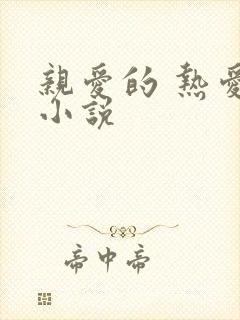 親愛的 熱愛
小說
帝中帝